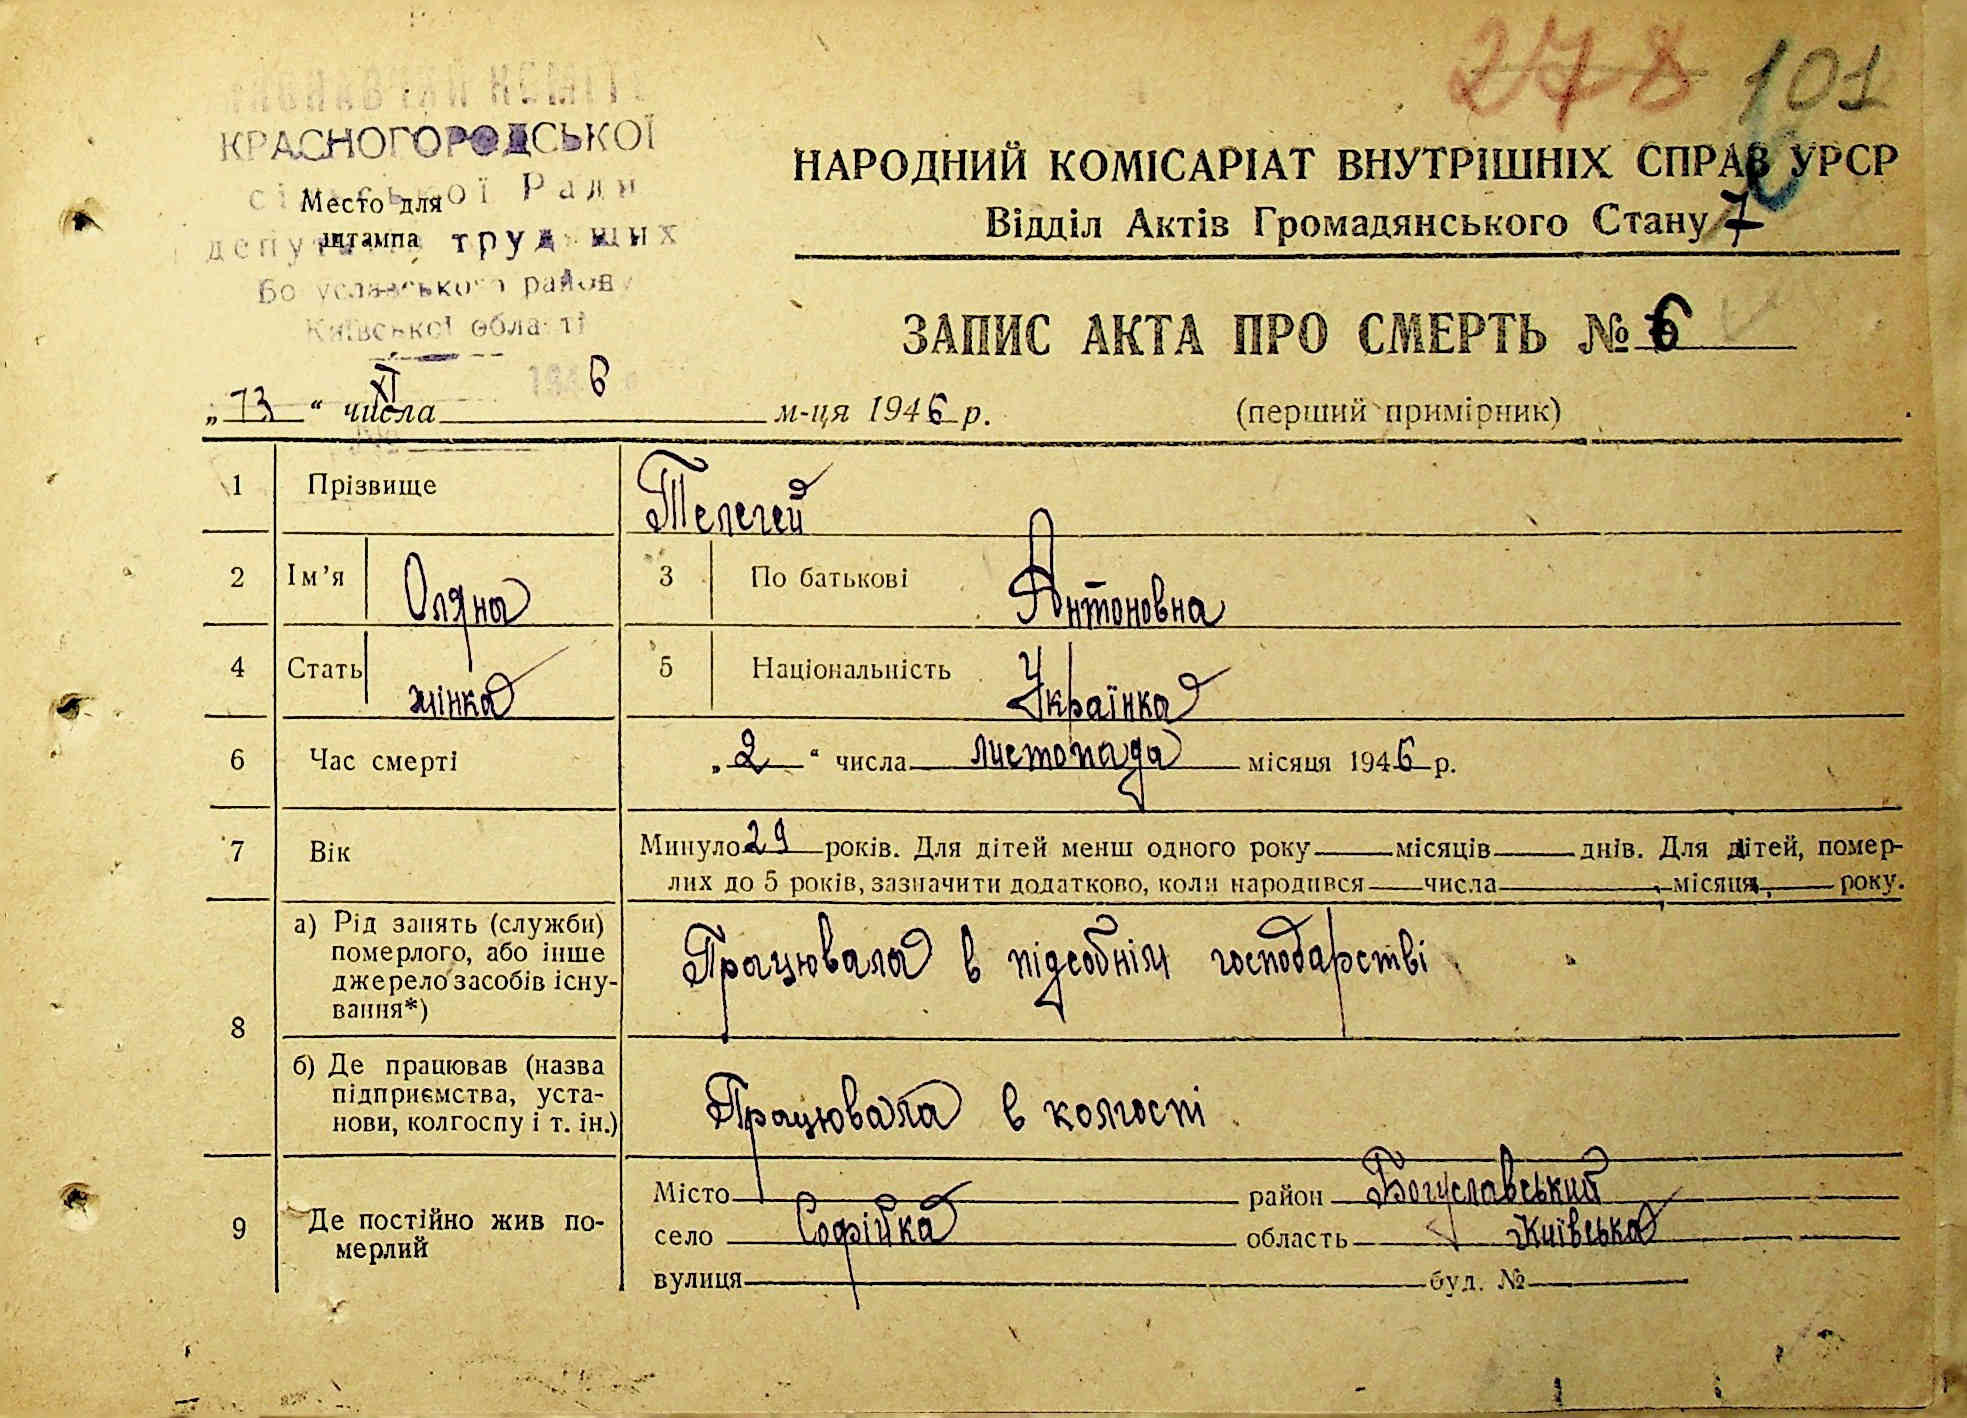 278 101
ВИКОНАВЧИЙ КОМІТЕТ
КРАСНОГОРОДСЬКОЇ
сільської Ради
депутатів трудящих
Богуславського району
Київської області
Место для
штампа
НАРОДНИЙ КОМІСАРІАТ ВНУТРІШНІХ СПРАВ УРСР
Відділ Актів Громадянського Стану 7
ЗАПИС АКТА ПРО СМЕРТЬ № 6
„13“ числа XI м-ця 1946 р.
(перший примірник)
1 Прізвище Телегей
2 Ім’я Оляна 3 По батькові Антоновна
4 Стать жінка 5 Національність Українка
6 Час смерті „2“ числа листопада місяця 1946 р.
7 Вік Минуло 29 років. Для дітей менш одного року місяців днів. Для дітей, помер-
лих до 5 років, зазначити додатково, коли народився числа місяця, року.
8 а) Рід занять (служби)
померлого, або інше
джерело засобів існу-
вання*)
Працювала в підсобнім господарстві
б) Де працював (назва
підприємства, уста-
нови, колгоспу і т. ін.)
Працювала в колгоспі
9 Де постійно жив по-
мерлий
Місто район Богуславський
село Софійка область Київська
вулиця буд. №